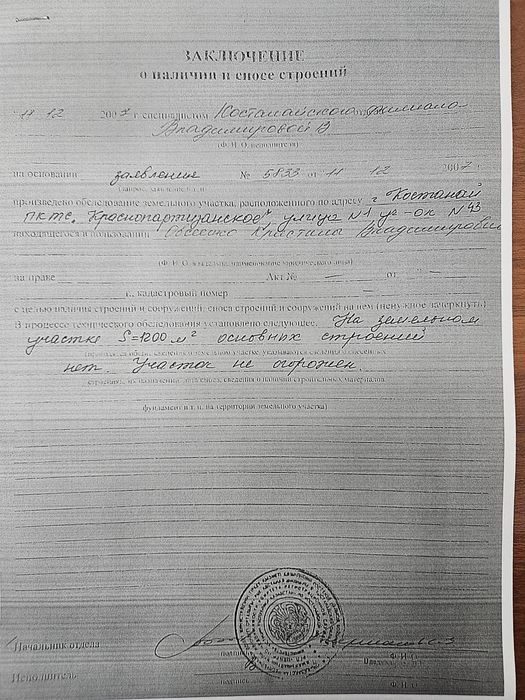 ЗАКЛЮЧЕНИЕ
о наличии и сносе строений
"11" 12 2007 г специалистом Костанайского филиала
Владимировой В
(Ф. И. О. исполнителя)
на основании заявление № 5833 от 11 12 2007 г
произведено обследование земельного участка, расположенного по адресу г Костанай
пкте. Краснопартизанское, улица N1 у-ок N43
находящегося в пользовании Кристины Владимировны
(Ф. И. О. владельца, наименование юридического лица)
на праве — Акт № — от —
г., кадастровый номер —
с целью наличия строений и сооружений, сноса строений и сооружений на нем (ненужное зачеркнуть)
В процессе технического обследования установлено следующее. На земельном
участке S=1200 м² основных строений
нет. Участок не огорожен.
строениях, их назначении, дата сноса, сведения о наличии строительных материалов
фундамент и т. п. на территории земельного участка)
Начальник отдела
подпись Ф. И. О.
Исполнитель
подпись Ф. И. О.